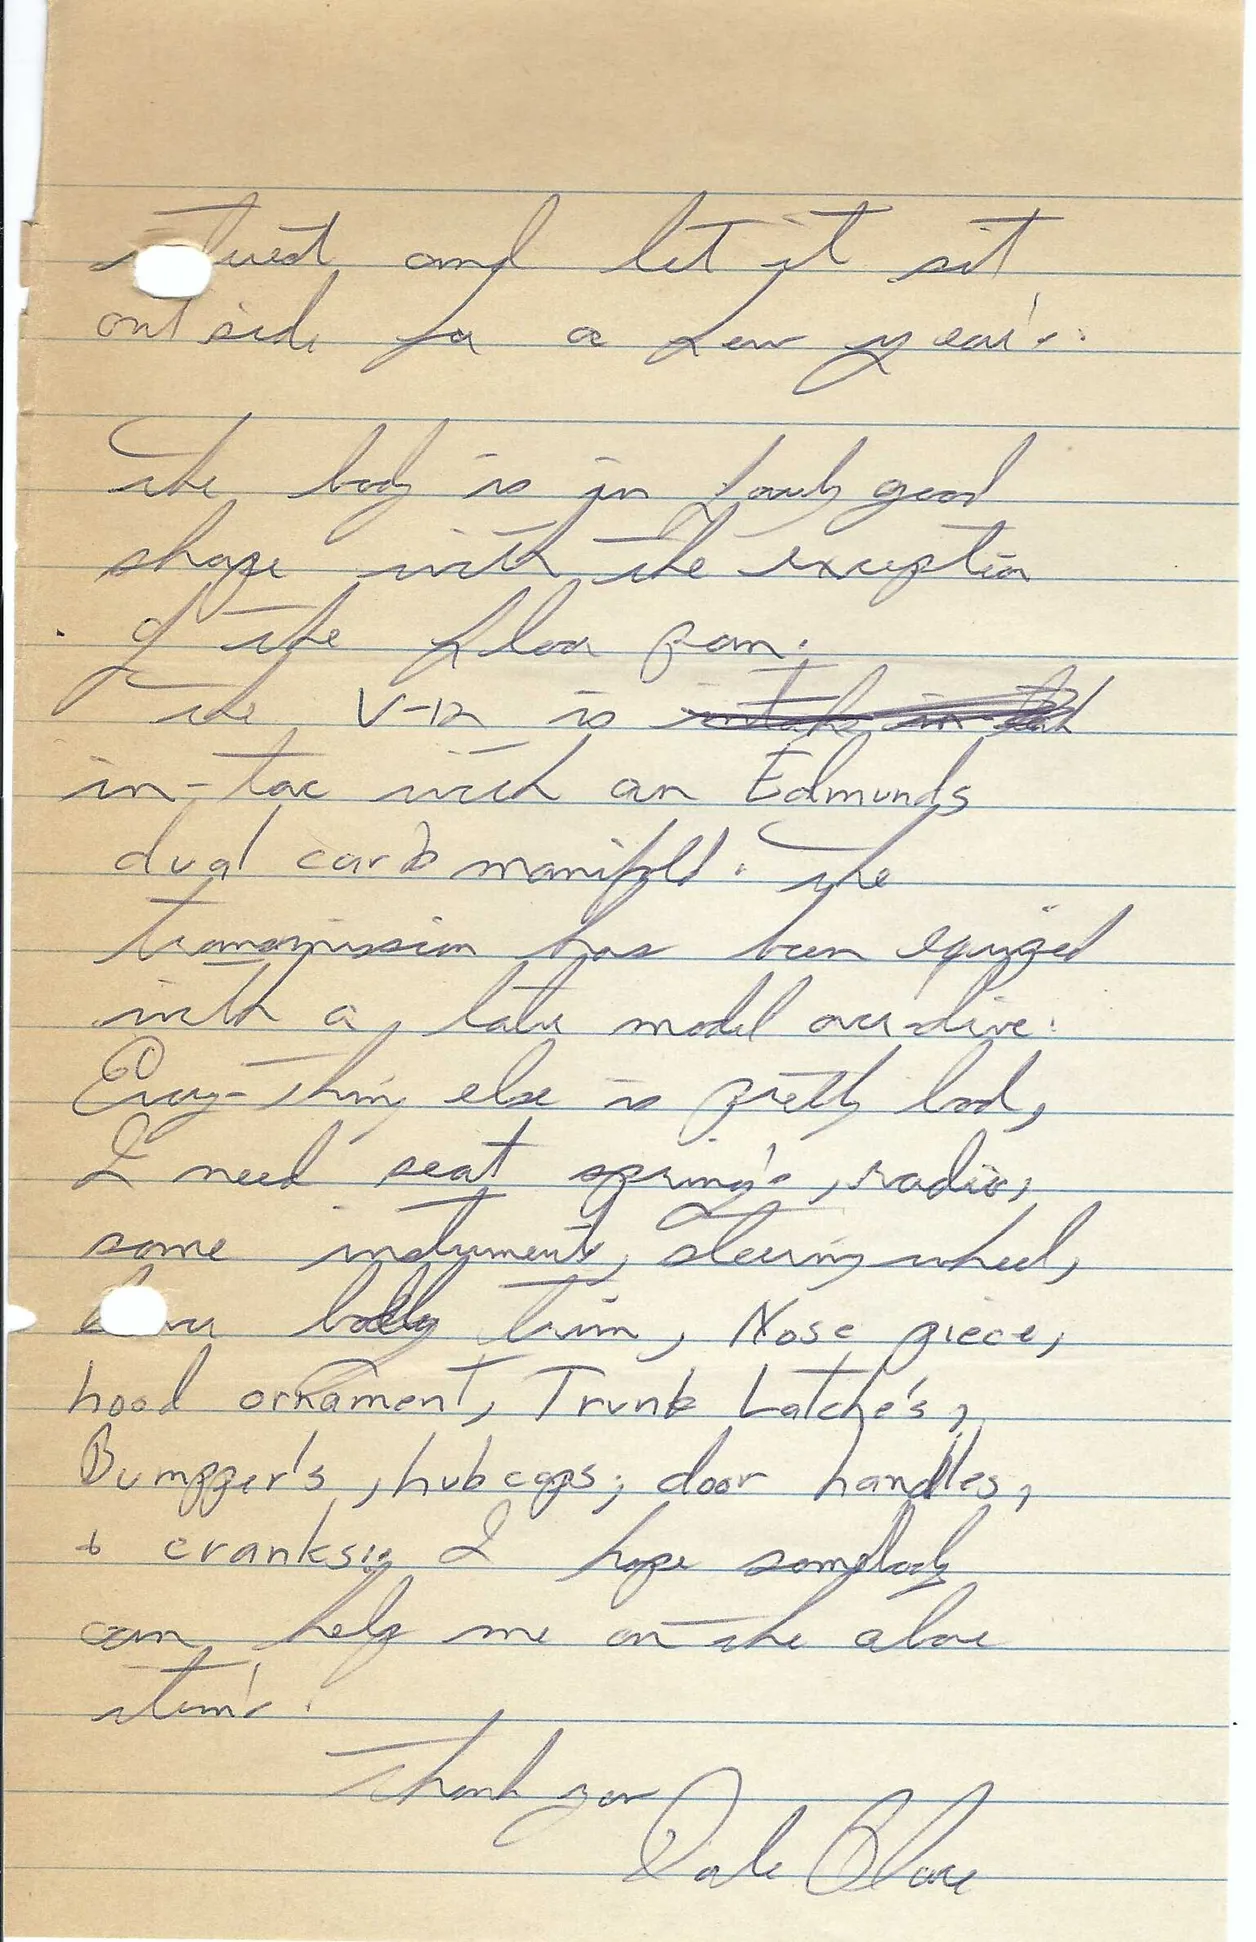 and let it sit
outside for a few year's.
The body is in fairly good
shape with the exception
of the floor pan.
The V-12 is
in-tac with an Edmunds
dual carb manifold. The
transmission has been equiped
with a later model over-drive.
Every-thing else is pretty bad,
I need seat spring's, radio,
some instruments, steering wheel,
body trim, Nose piece,
hood ornament, Trunk Latche's,
Bumpper's, hubcaps, door handles,
+ cranks. I hope somebody
can help me on the above
item's.
Thank you
Dale